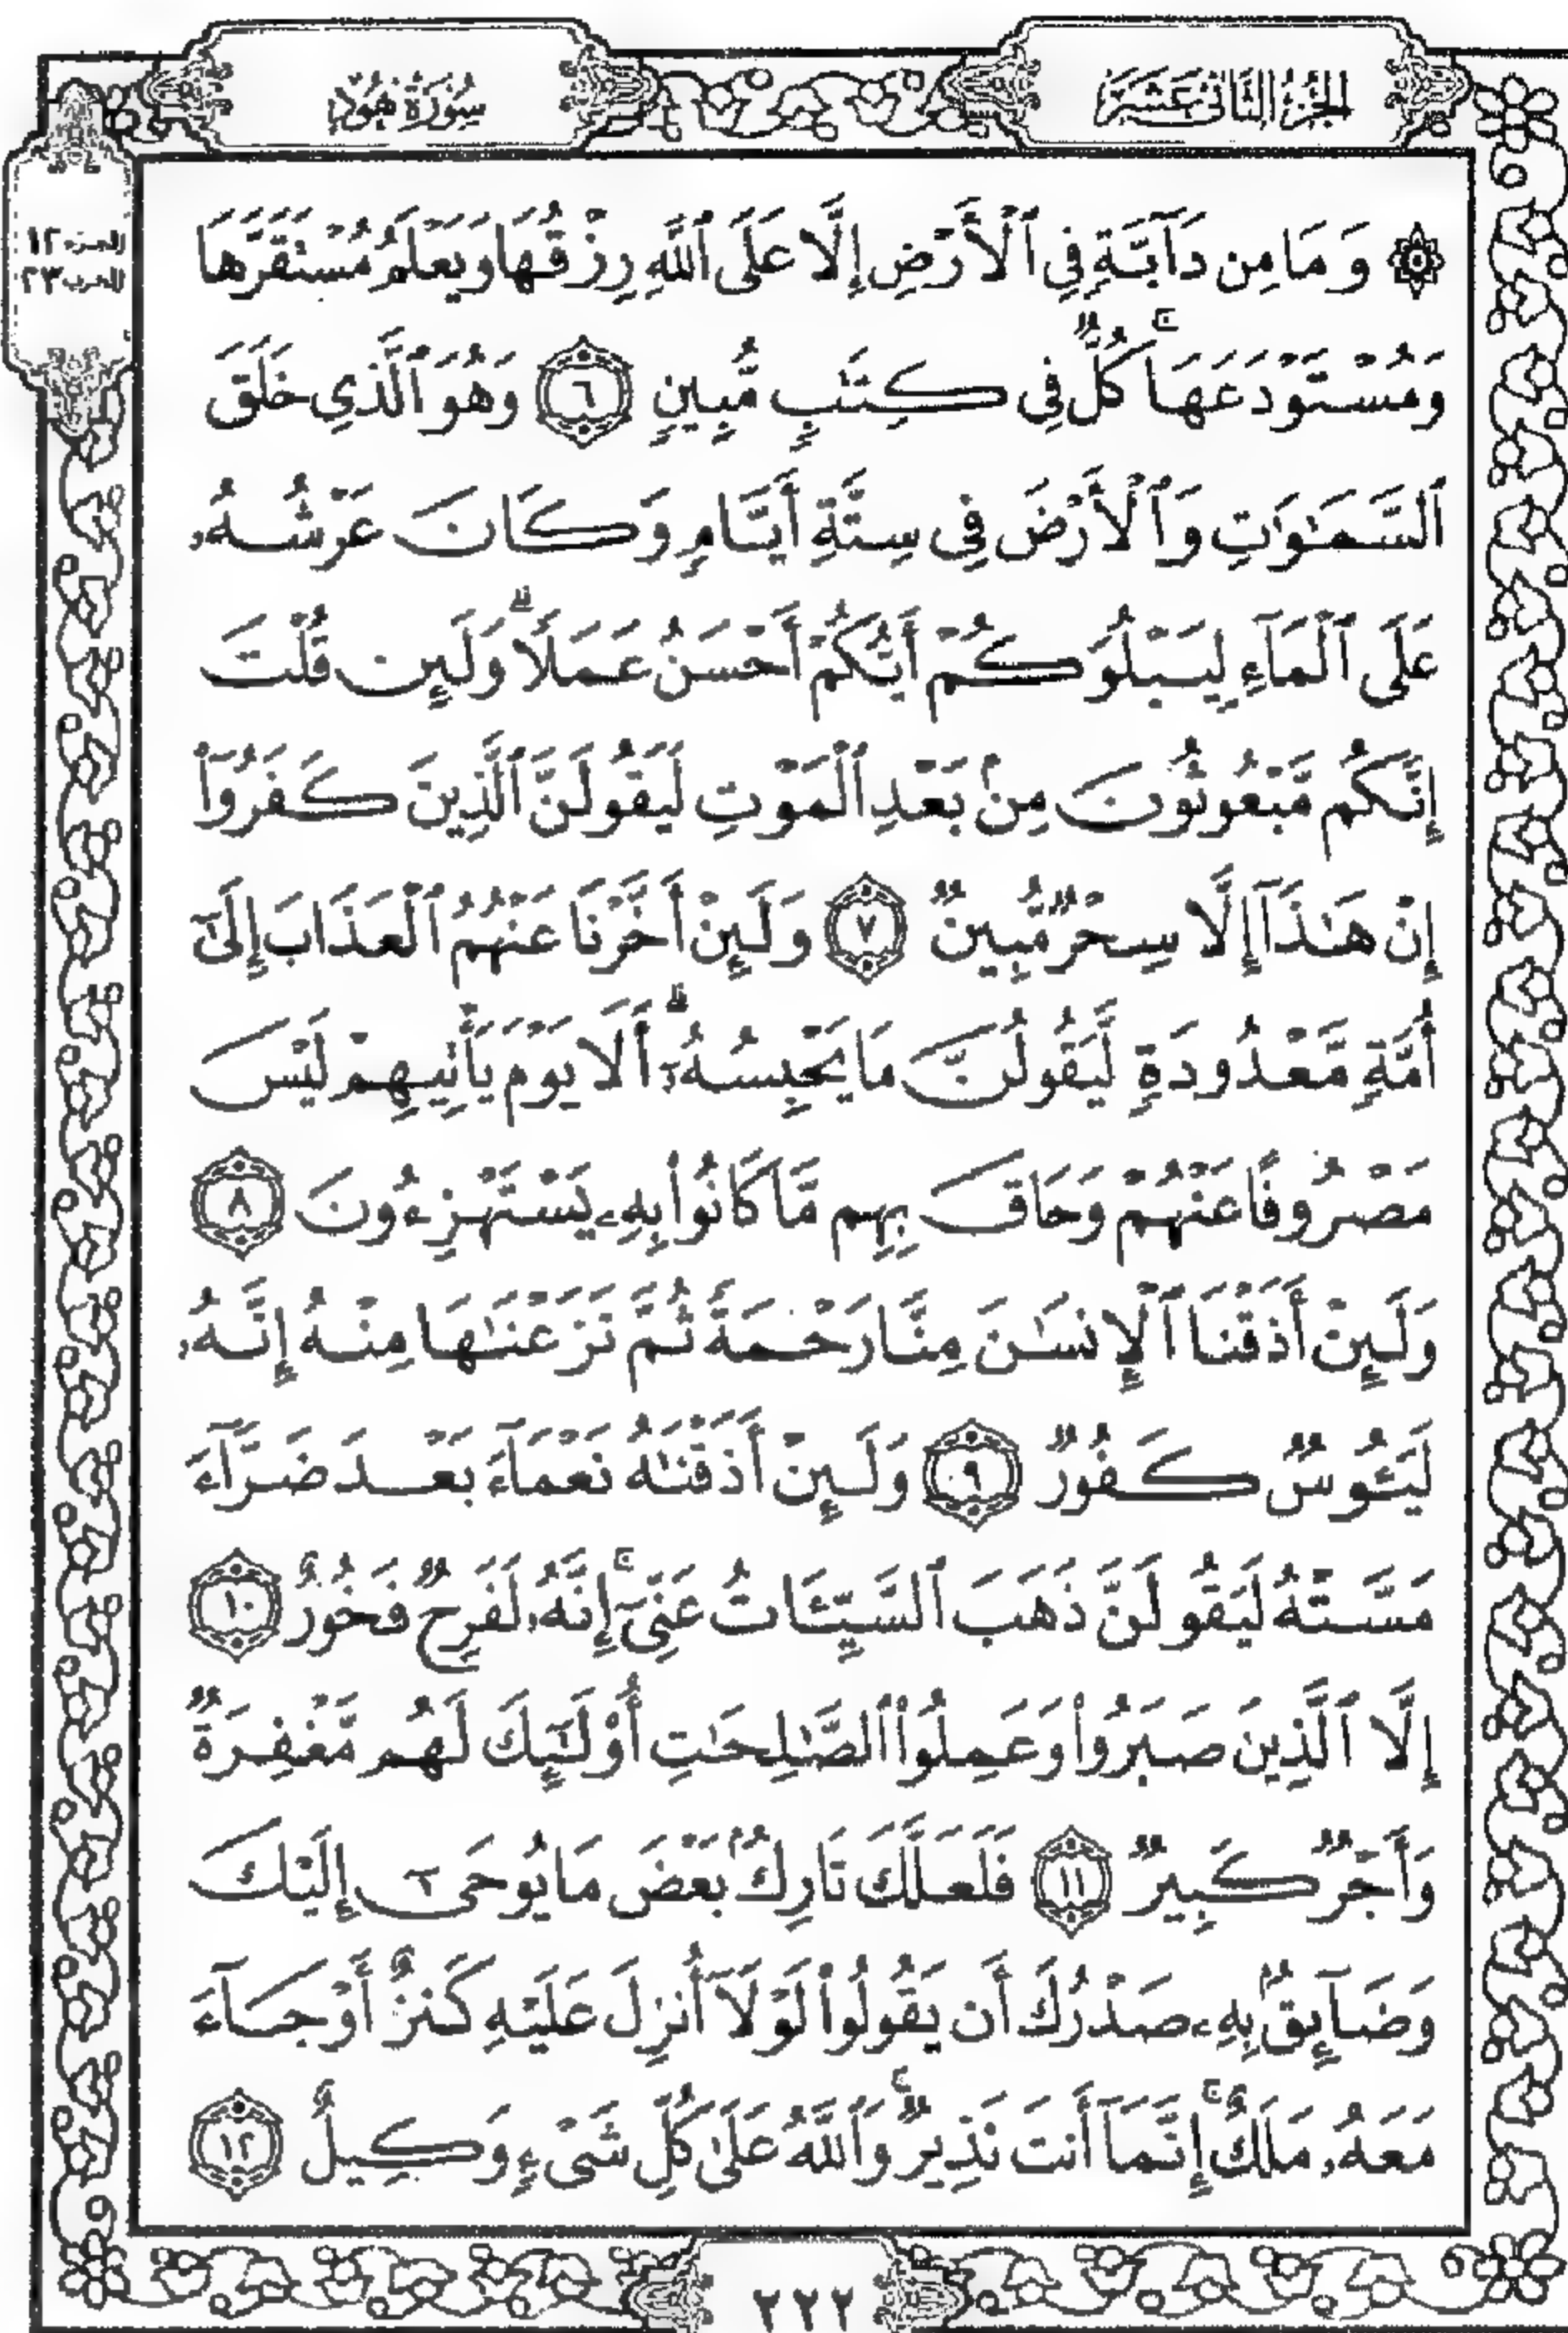 الجزء الثاني عشر
سورة هود
الجزء ١٢
الحزب ٢٣
۞ وَمَا مِن دَآبَّةٍ فِي ٱلْأَرْضِ إِلَّا عَلَى ٱللَّهِ رِزْقُهَا وَيَعْلَمُ مُسْتَقَرَّهَا
وَمُسْتَوْدَعَهَا ۚ كُلٌّ فِي كِتَٰبٍ مُّبِينٍ ٦ وَهُوَ ٱلَّذِي خَلَقَ
ٱلسَّمَٰوَٰتِ وَٱلْأَرْضَ فِي سِتَّةِ أَيَّامٍ وَكَانَ عَرْشُهُۥ
عَلَى ٱلْمَآءِ لِيَبْلُوَكُمْ أَيُّكُمْ أَحْسَنُ عَمَلًا ۗ وَلَئِن قُلْتَ
إِنَّكُم مَّبْعُوثُونَ مِنۢ بَعْدِ ٱلْمَوْتِ لَيَقُولَنَّ ٱلَّذِينَ كَفَرُوٓا۟
إِنْ هَٰذَآ إِلَّا سِحْرٌ مُّبِينٌ ٧ وَلَئِنْ أَخَّرْنَا عَنْهُمُ ٱلْعَذَابَ إِلَىٰٓ
أُمَّةٍ مَّعْدُودَةٍ لَّيَقُولُنَّ مَا يَحْبِسُهُۥٓ ۗ أَلَا يَوْمَ يَأْتِيهِمْ لَيْسَ
مَصْرُوفًا عَنْهُمْ وَحَاقَ بِهِم مَّا كَانُوا۟ بِهِۦ يَسْتَهْزِءُونَ ٨
وَلَئِنْ أَذَقْنَا ٱلْإِنسَٰنَ مِنَّا رَحْمَةً ثُمَّ نَزَعْنَٰهَا مِنْهُ إِنَّهُۥ
لَيَـُٔوسٌ كَفُورٌ ٩ وَلَئِنْ أَذَقْنَٰهُ نَعْمَآءَ بَعْدَ ضَرَّآءَ
مَسَّتْهُ لَيَقُولَنَّ ذَهَبَ ٱلسَّيِّـَٔاتُ عَنِّيٓ ۚ إِنَّهُۥ لَفَرِحٌ فَخُورٌ ١٠
إِلَّا ٱلَّذِينَ صَبَرُوا۟ وَعَمِلُوا۟ ٱلصَّٰلِحَٰتِ أُو۟لَٰٓئِكَ لَهُم مَّغْفِرَةٌ
وَأَجْرٌ كَبِيرٌ ١١ فَلَعَلَّكَ تَارِكٌۢ بَعْضَ مَا يُوحَىٰٓ إِلَيْكَ
وَضَآئِقٌۢ بِهِۦ صَدْرُكَ أَن يَقُولُوا۟ لَوْلَآ أُنزِلَ عَلَيْهِ كَنزٌ أَوْ جَآءَ
مَعَهُۥ مَلَكٌ ۚ إِنَّمَآ أَنتَ نَذِيرٌ ۚ وَٱللَّهُ عَلَىٰ كُلِّ شَىْءٍ وَكِيلٌ ١٢
٢٢٢